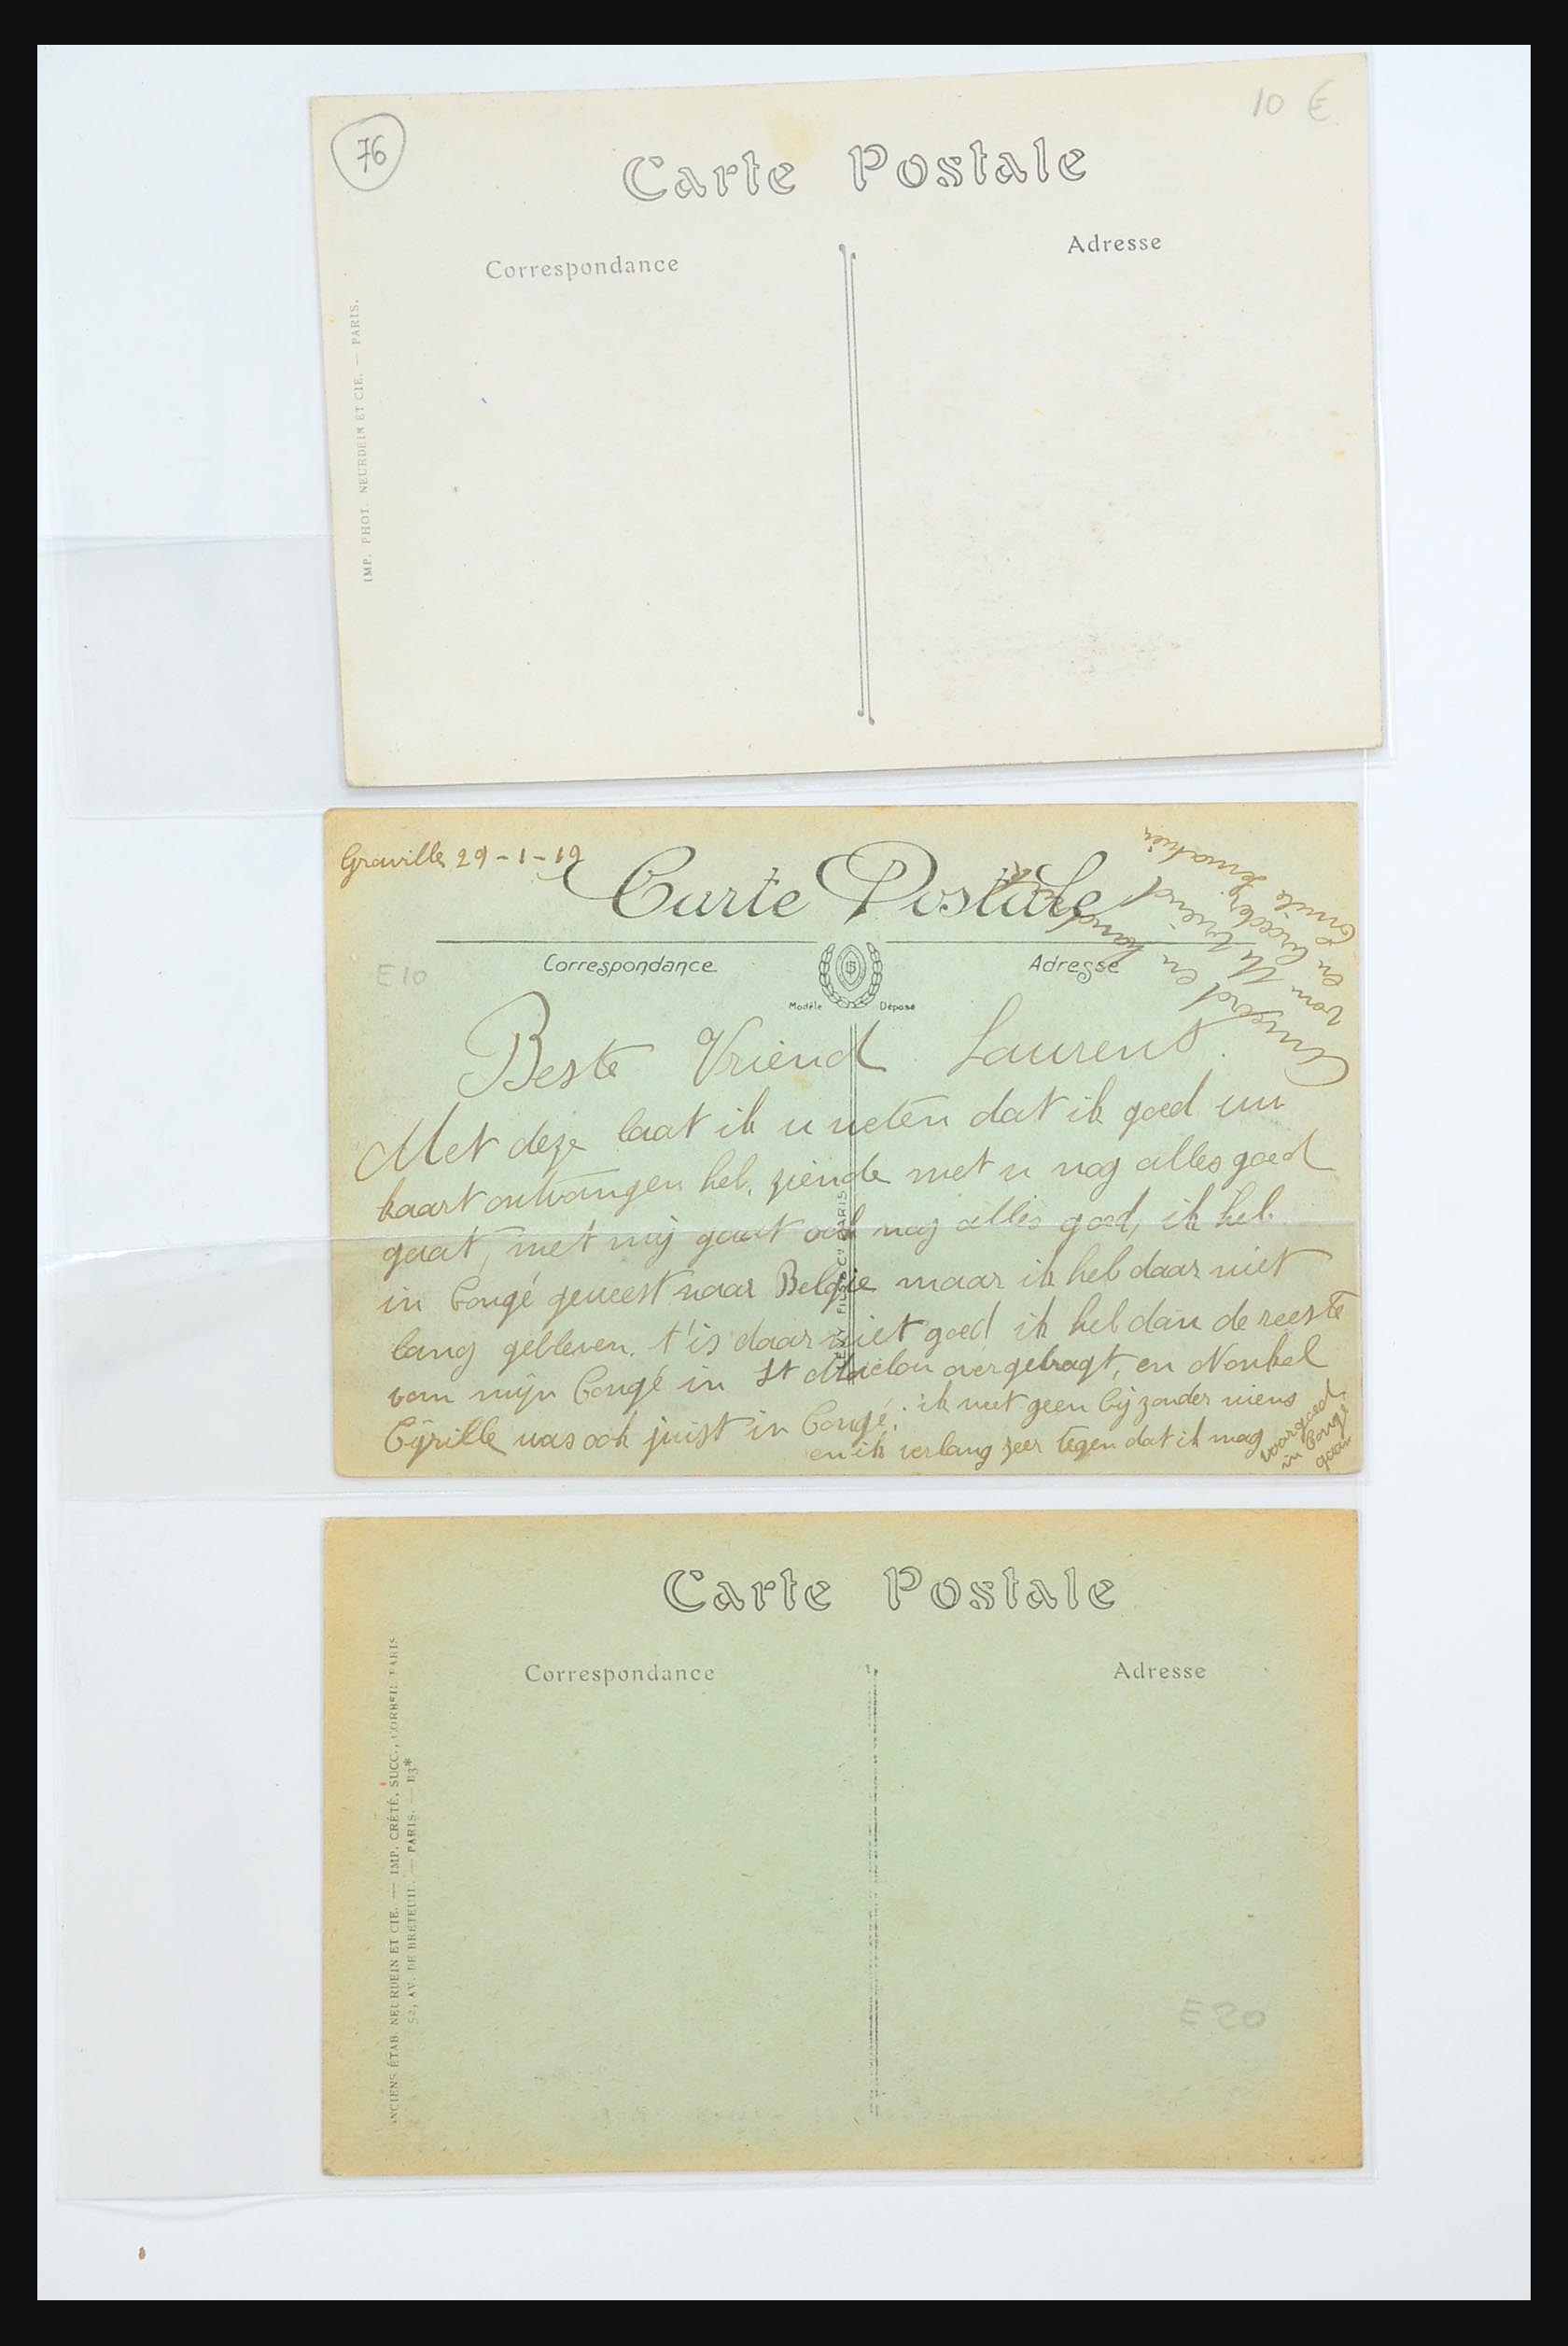 76
10 €
Carte Postale
Correspondance
Adresse
IMP. PHOT. NEURDEIN ET CIE. — PARIS.
Graville 29-1-19
Carte Postale
E10
Correspondance
Adresse
Modèle Déposé
Beste Vriend Laurent.
Met deze laat ik u weten dat ik goed uw
kaart ontvangen heb, ziende met u nog alles goed
gaat, met mij gaat ook nog alles goed, ik heb
in Congé geweest naar Belgie maar ik heb daar niet
lang gebleven. t'is daar niet goed ik heb dan de reeste
van mijn Congé in St overgebragt, en Nonkel
Cÿrille was ook juist in Congé; ik weet geen bijzonder niens
en ik verlang zeer tegen dat ik mag
voorgoed
in Congé
gaan
en
van Uw vriend
en broeder
Emile
PARIS
Carte Postale
Correspondance
Adresse
ANCIENS ÉTAB. NEURDEIN ET CIE. — IMP. CRÉTÉ, SUCC., CORBEIL-PARIS
52, AV. DE BRETEUIL. — PARIS. — B3*
E20